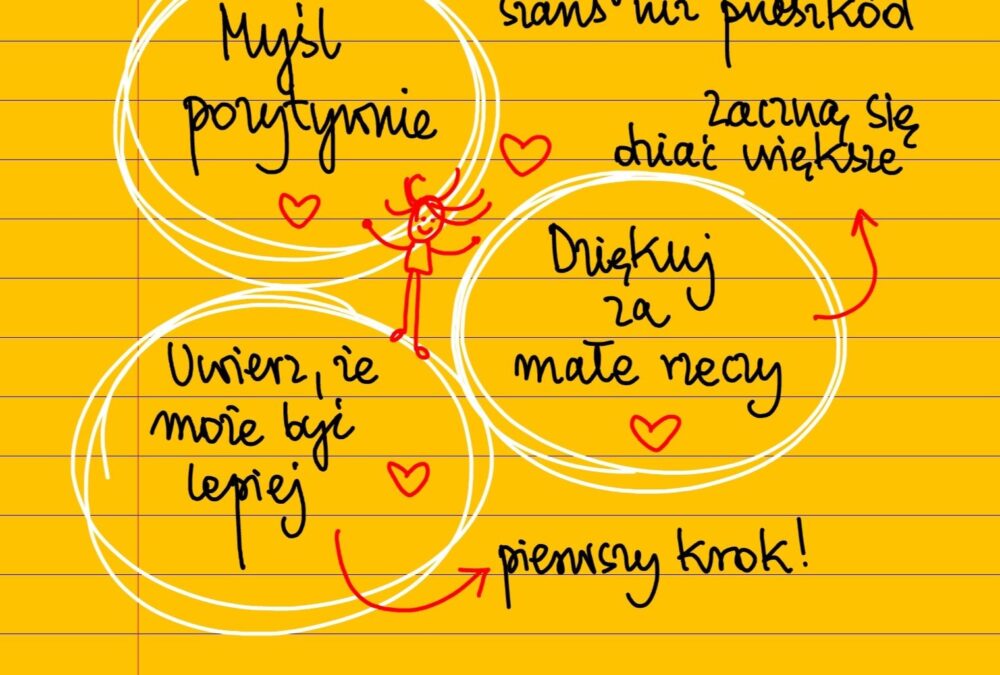 szans niż przeszkód
Myśl
pozytywnie
zaczną się
dziać większe
Dziękuj
za
małe rzeczy
Uwierz, że
może być
lepiej
pierwszy krok!